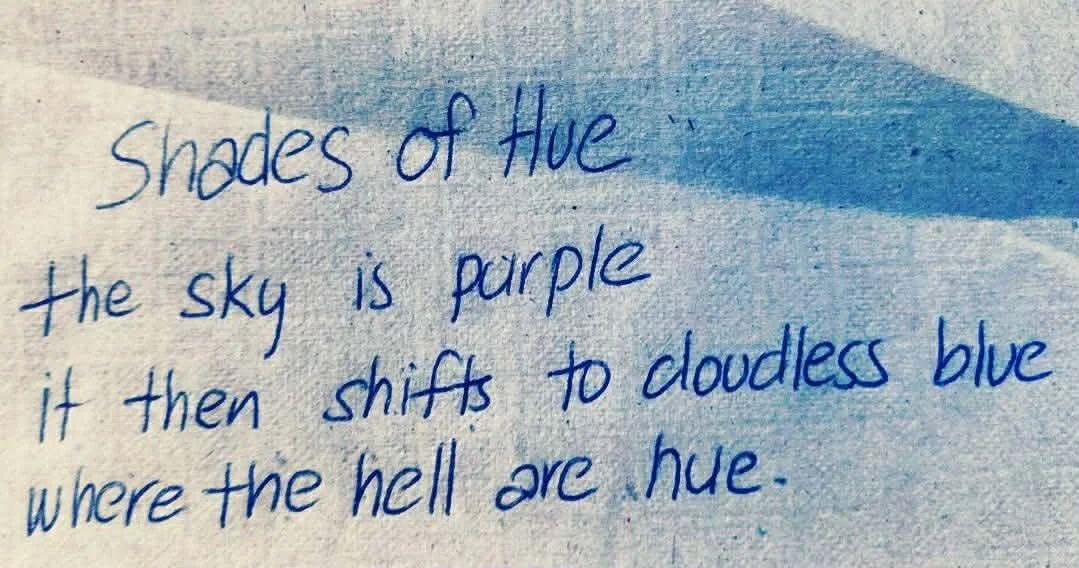 Shades of Hue
the sky is purple
it then shifts to cloudless blue
where the hell are hue.